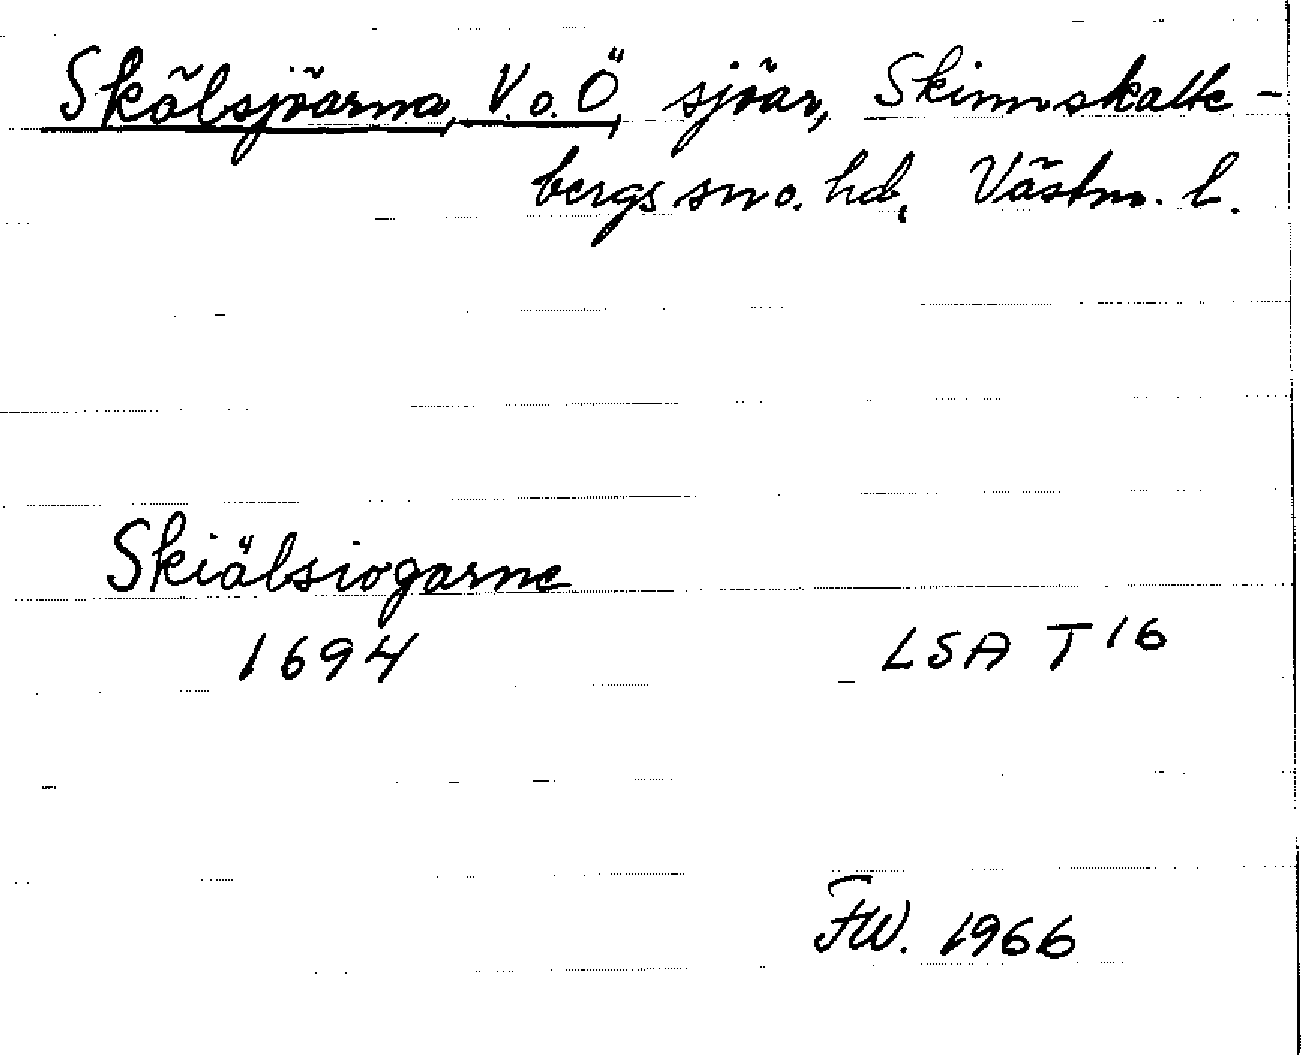 Skälsjöarna, V. o. Ö, sjöar, Skinnskatte-
bergs sn o. hd, Västm. l.
Skiälsiogarne
1694 LSA T 16
FW. 1966